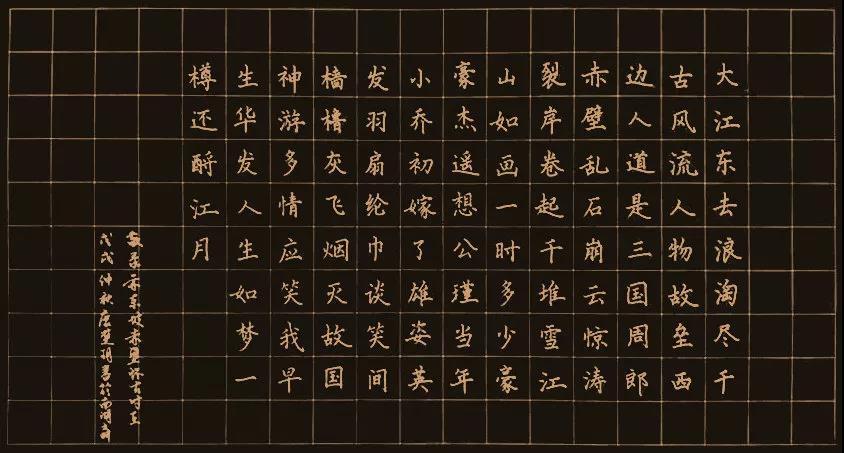 大江东去浪淘尽千
古风流人物故垒西
边人道是三国周郎
赤壁乱石崩云惊涛
裂岸卷起千堆雪江
山如画一时多少豪
豪杰遥想公瑾当年
小乔初嫁了雄姿英
发羽扇纶巾谈笑间
樯橹灰飞烟灭故国
神游多情应笑我早
生华发人生如梦一
樽还酹江月
录东坡赤壁怀古时在
戊戌仲秋书於西湖